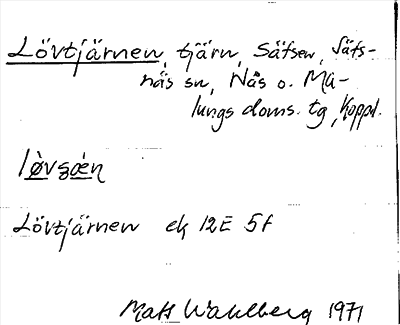 Lövtjärnen, tjärn, Säfsen, Säfs-
näs sn, Nås o. Ma-
lungs doms. tg, Koppl.
Lövtjärnen ek 12E 5f
Mats Wahlberg 1971